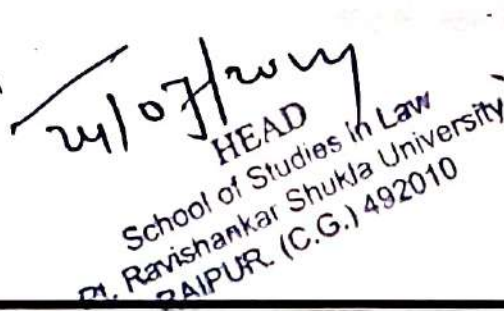 24/07/2024
HEAD
School of Studies in Law
Pt. Ravishankar Shukla University
RAIPUR. (C.G.) 492010